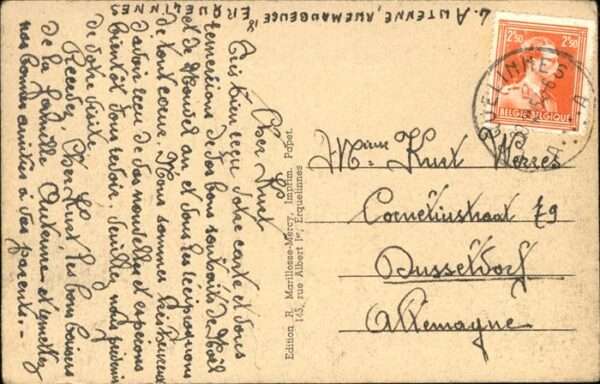 L. AUTENNE, RUE MAUBEUGE 18
ERQUELINNES
Cher Kurt
Très bien reçu votre carte et vous
remercions de vos bons souhaits de Noël
et de Nouvel an et vous les réciproquons
de tout coeur. Nous sommes très heureux
d'avoir reçu de vos nouvelles et espérons
bientôt vous revoir. Veuillez nous prévenir
de votre visite.
Recevez, Cher Kurt les bons baisers
de la famille Autenne et remettez
nos bonnes amitiés à vos parents.-
Edition R. Marillesse-Mercy, Imprim. Papet.
145, rue Albert Ier, Erquelinnes
2F50 2F50
BELGIE-BELGIQUE
ERQUELINNES
A
A
Kurt Werres
Corneliusstraat 79
Dusseldorf
Allemagne